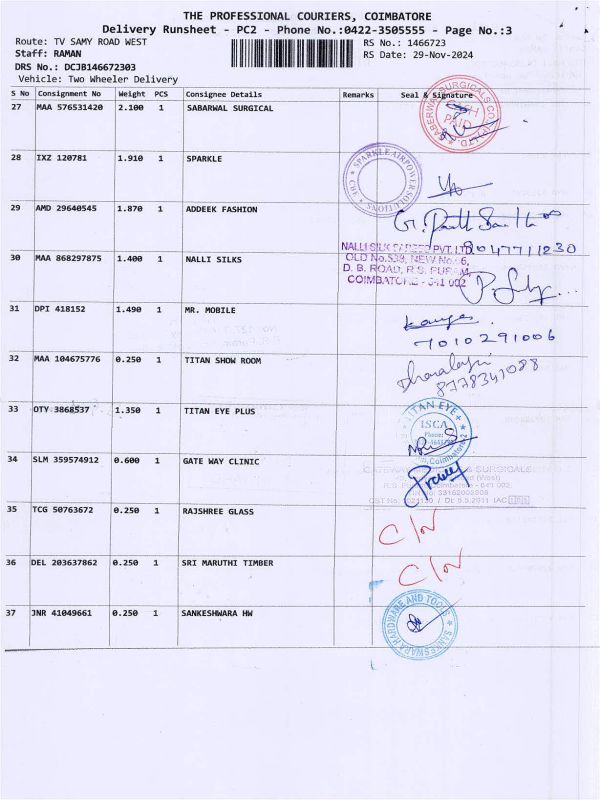 THE PROFESSIONAL COURIERS, COIMBATORE
Delivery Runsheet - PC2 - Phone No.:0422-3505555 - Page No.:3
Route: TV SAMY ROAD WEST RS No.: 1466723
Staff: RAMAN RS Date: 29-Nov-2024
DRS No.: DCJB146672303
Vehicle: Two Wheeler Delivery
S No Consignment No Weight PCS Consignee Details Remarks Seal & Signature
27 MAA 576531420 2.100 1 SABARWAL SURGICAL
CASH PAID
28 IXZ 120781 1.910 1 SPARKLE
SPARKLE AIRPOWER SOLUTIONS
29 AMD 29640545 1.870 1 ADDEEK FASHION
9047711230
30 MAA 868297875 1.400 1 NALLI SILKS
NALLI SILK SAREES PVT. LTD.
OLD No.539, NEW No.
D. B. ROAD, R.S. PURAM,
COIMBATORE - 641 002
31 DPI 418152 1.490 1 MR. MOBILE
7010291006
32 MAA 104675776 0.250 1 TITAN SHOW ROOM
8778341088
33 OTY 3868537 1.350 1 TITAN EYE PLUS
TITAN EYE+
ISCA
Phone:
34 SLM 359574912 0.600 1 GATE WAY CLINIC
35 TCG 50763672 0.250 1 RAJSHREE GLASS
C/N
36 DEL 203637862 0.250 1 SRI MARUTHI TIMBER
C/N
37 JNR 41049661 0.250 1 SANKESHWARA HW
SANKESWARA HARDWARE AND TOOLS